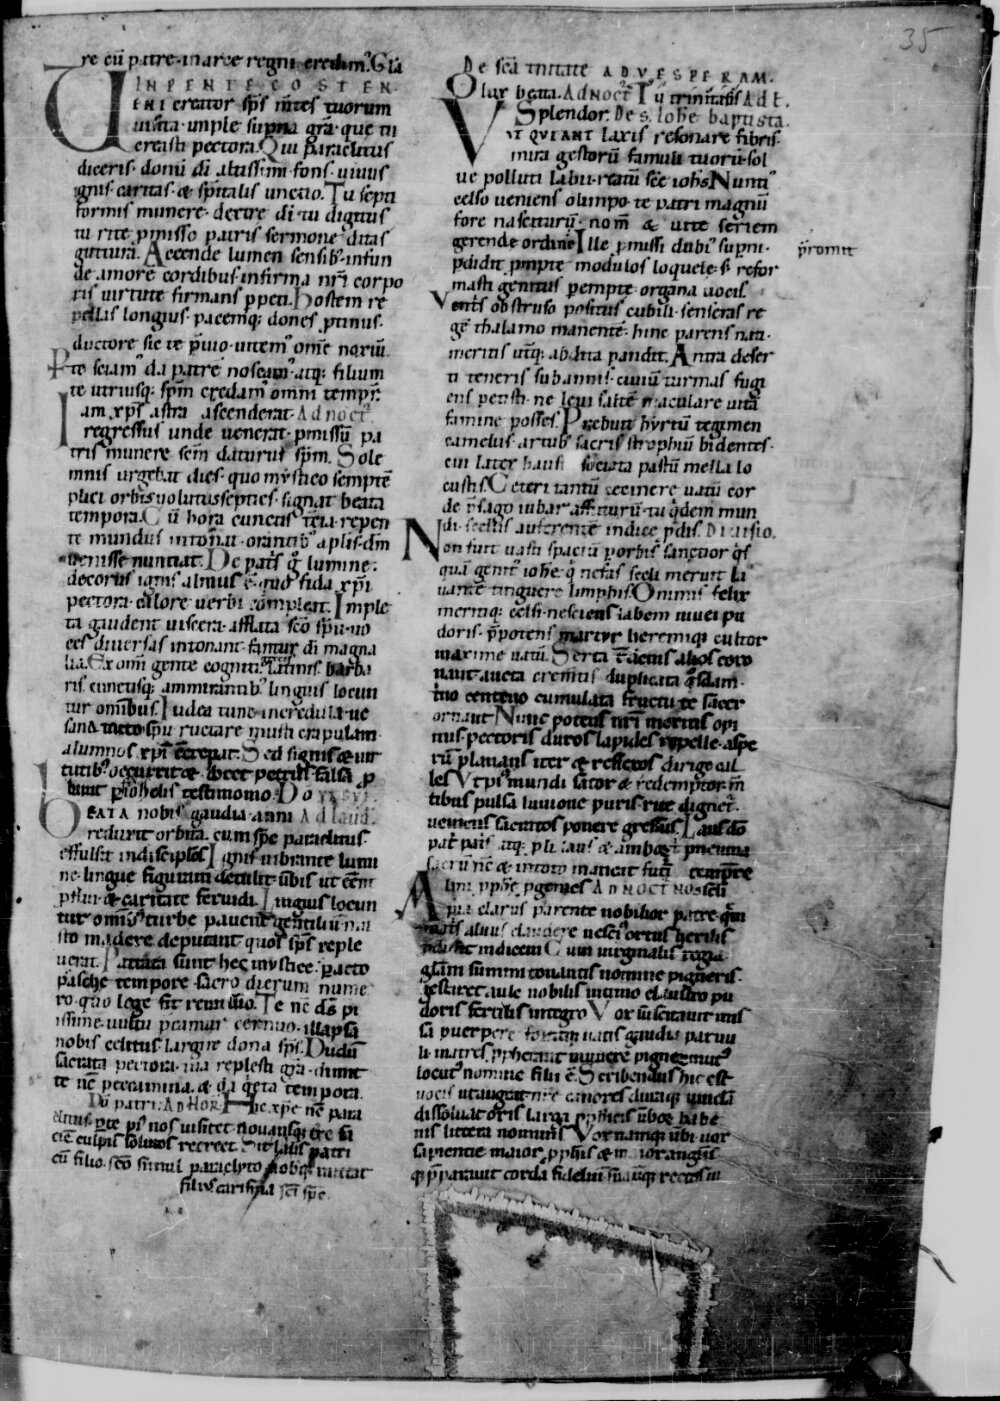 35
re cū patre in arce regni credim᷒. Gła
IN PENTECOSTEN
VENI creator sp̄s m̄tes tuorum
uisita. imple sup̄na gr̄a. que tu
creasti pectora. Qui paraclitus
diceris. donū di altissimi. fons uiuus
ignis caritas. & sp̄italis unctio. Tu septi
formis munere. dextre di tu digitus
tu rite p̄misso patris sermone ditas
guttura. Accende lumen sensib᷒. infun
de amore cordibus. infirma nr̄i corpo
ris uirtute firmans ppeti. Hostem re
pellas longius. pacemq; dones ptinus.
ductore sic te p̄uio. uitem᷒ om̄e noxiū.
P te sciam᷒ da patrē. noscam᷒ atq; filium
te utriusq; sp̄m credam᷒ omni temp̄r.
Iam xp̄s astra ascenderat. Ad noct̄.
regressus unde uenerat. p̄missū pa
tris munere sc̄m daturus sp̄m. Sole
mnis urgebat dies. quo mystico septemp̄
plici orbis uolutus septies. signat beata
tempora. Cū hora cunctis t̄cia. repen
te mundus intonat. orantib᷒ aplis. dm̄
uenisse nuntiat. De pat̄s g̊ lumine.
decorus ignis almus ē. quo fida xp̄i
pectora. calore uerbi cōpleat. Imple
ta gaudent uiscera. afflata sc̄o sp̄u. uo
ces diuersas intonant. fantur di magna
lia. Ex om̄i gente cogniti. latinis barba
ris cunctisq; ammirantib᷒ linguis locun
tur omnibus. Iudea tunc incredula. ue
sana tuto sp̄u. ructare musti crapulam
alumnos xp̄i c̄crepat. Sed signis & uir
tutib᷒ occurrit & docet petrus. falsa p
bauit p Iohelis testimonio. Dō
BEATA nobis gaudia anni Ad laud̄.
reduxit orbita. cum sp̄e paraclitus.
effulsit in discip̄los. Ignis uibrante lumi
ne. lingue figuram detulit. ūbis ut eēnt
pflui. & caritate feruidi. Linguis locun
tur omniū. turbe pauent gentiliū. mu
sto madere deputant. quos sp̄s reple
uerat. Patrata sunt hec mystice. pacto
pasche tempore. sacro dierum nume
ro. quo lege fit remissio. Te nc̄ ds̄ pi
issime. uultu p̄camur cernuo. illapsa
nobis celitus largire dona sp̄s. Dudū
sacrata pectora. tua replesti gr̄a. dimit
te nc̄ peccamina. & da q̄eta tempora.
Dō patri. Ad hor. Hic xp̄e nc̄ para
clitus. p te pi᷒ nos uisitet. nouansq; t̄re fa
ciē. culpis solutos recreet. Sit laus patri
cū filio. sc̄o simul paraclyto nobisq; mittat
filius carisma sc̄i sp̄c.
De sc̄a trinitate AD VESPERAM.
O lux beata. Ad noct̄ Tu trinitatis Ad l.
Splendor. De s. Iohe baptista.
VT QVEANT laxis resonare fibris.
mira gestorū famuli tuorū. sol
ue polluti labii reatū sc̄e iohs. Nunti᷒
celso ueniens olimpo. te patri magnū
fore nasciturū. nom̄ & uite seriem
gerende ordine Ille p̄missi dubi᷒ sup̄ni. p̄romit
pdidit p̄mpte modulos loquele. s; refor
masti genitus pempte organa uocis.
Vent̄s obstruso positus cubili. senseras re
gē thalamo manentē. hinc parens nati
meritis ut̄q; abdita pandit. Antra deser
ti teneris sub annis. ciuiū turmas fugi
ens petisti. ne leui saltē maculare uitā
famine posses. Prebuit hyrtū tegimen
camelus. artub᷒ sacris strophiū bidentes.
cui latex haust sociata pastū mella lo
custis. Ceteri tantū cecinere uatū. cor
de p̄sago iubar affuturū. tu q̄dem mun
di scelus auferentē indice p̄dis. Diuisio.
Non fuit uasti spaciū porbis sanctior q̄s
quā genit᷒ iohe. q̄ nefas secli meruit la
uantē tinguere limphis. O nimis felix
meritiq; celsi. nesciens labem niuei pu
doris. p̄potens martyr heremiq; cultor
maxime uatū. Serta t̄ denis alios coro
nant. aucta crem̄tis duplicata q̄sdam.
t̄no centeno cumulata fructu. te sacer
ornant Nunc potens nr̄i meritis opi
mis. pectoris duros lapides repelle. aspe
rū planans iter. & reflexos dirige cal
les Vt pi᷒ mundi sator & redemptor. m̄
tibus pulsa liuione puris. rite dignet̄.
ueniens sacratos ponere gressus. Laus dō
patri pat̄s atq; pli. laus & amborū t̄ pneuma
sacrū nc̄ & in toto maneat fut̄ tempore
Almi pphē pgenies AD NOCT̄ NOS. scīi
pia. clarus parente nobilior patre. quem
mat̄s aluus claudere nesci᷒ ortus herilis
pdidit indicem Cum uirginalis regia
glam summi tonantis nomine pigneris.
gestiret aule nobilis intimo. claustro pu
doris fertilis integro Vox suscitauit mis
sa puerpere. fetam uatis gaudia paruu
li. matres. pphetant munere pignerū. mut᷒
locut᷒ nomine filii ē. Scribendus hic est
uocis ut angeli. nr̄e canores diuaq; uincla
dissoluat oris larga pphetis ūbo. babe
nis littera nominis Vox namq; ubi uox
sapientie maior. pphetis & minor angelis
q pparauit corda fidelium. suauiq; rectas in